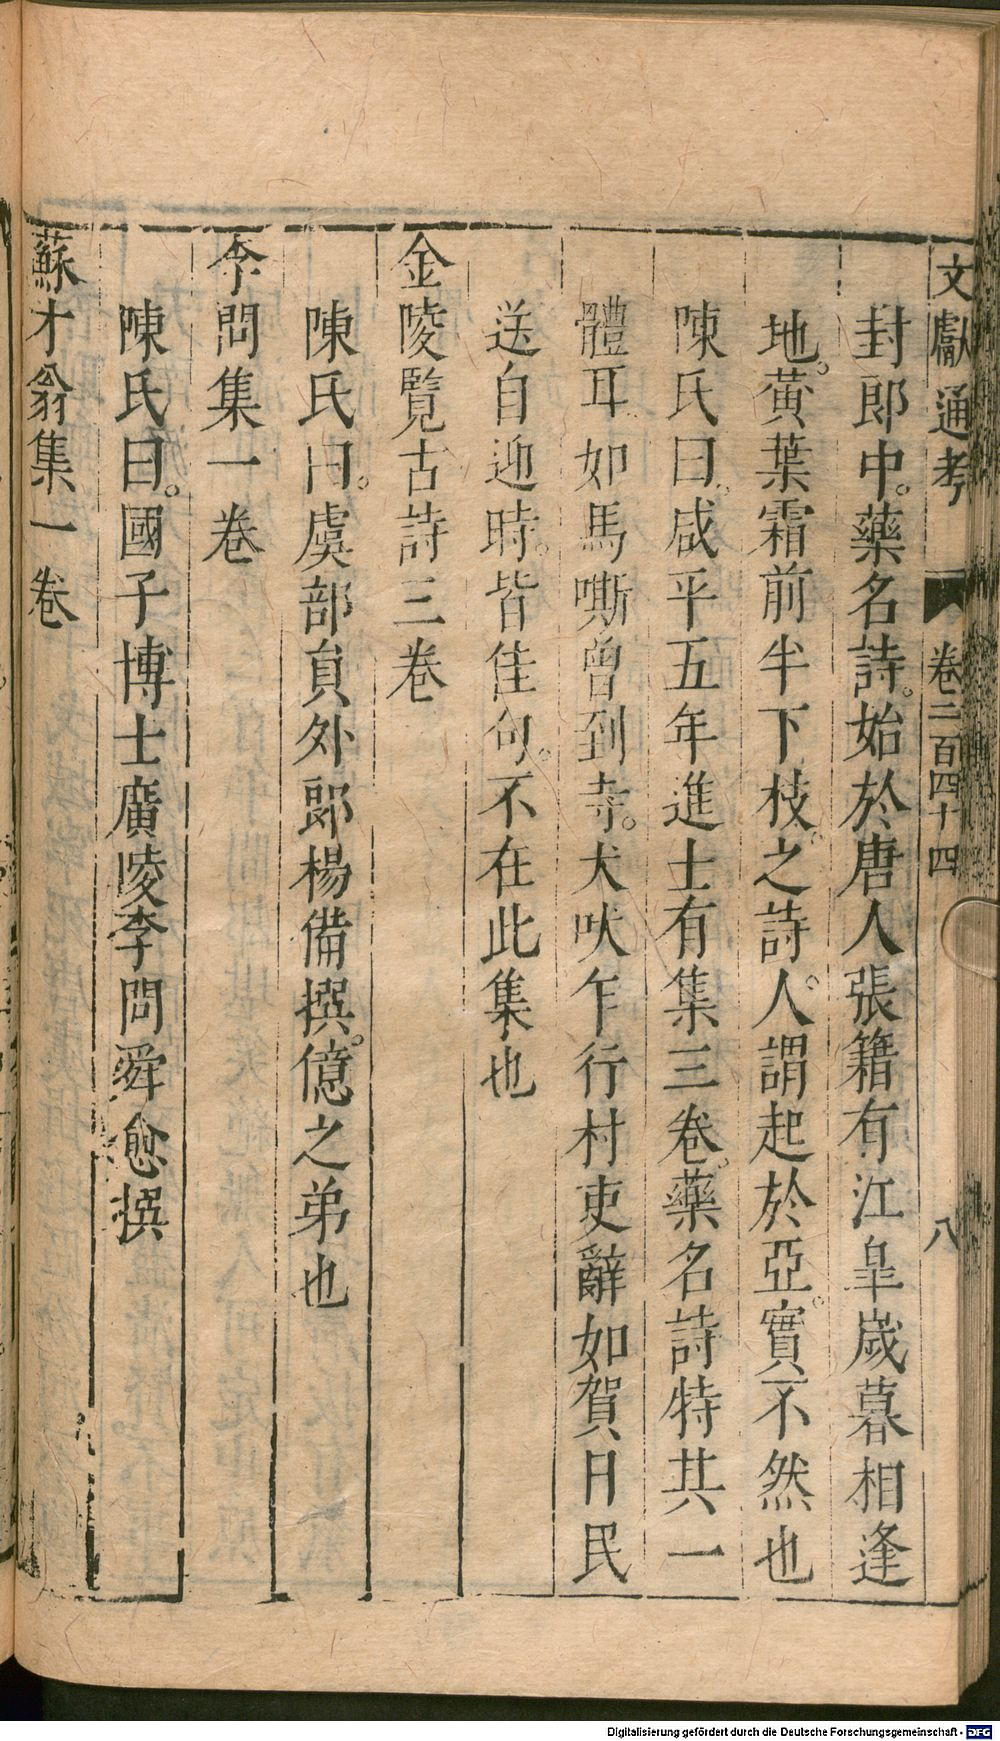 文獻通考 卷二百四十四 八
封郎中。藥名詩。始於唐人張籍有江皐歲暮相逢
地。黃葉霜前半下枝。之詩。人謂起於亞。實不然也
陳氏曰。咸平五年進士有集三卷。藥名詩特共一
體耳如馬嘶曾到寺。犬吠乍行村吏辭如賀日民
送自迎時。皆佳句。不在此集也
金陵覽古詩三卷
陳氏曰。虞部負外郎楊備撰。億之弟也
李問集一卷
陳氏曰。國子博士廣陵李問舜愈撰
蘇才翁集一卷
Digitalisierung gefördert durch die Deutsche Forschungsgemeinschaft - DFG